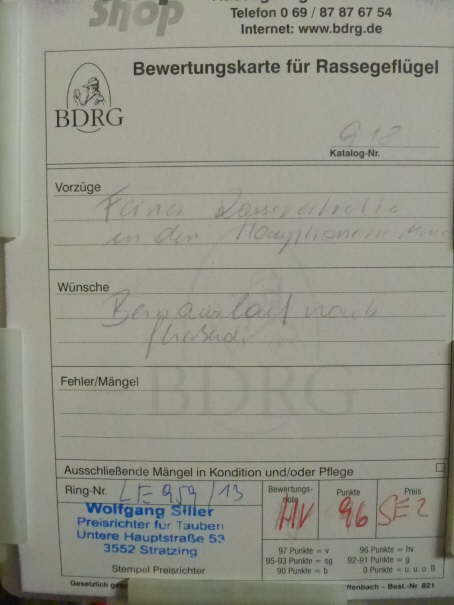 shop
Telefon 0 69 / 87 87 67 54
Internet: www.bdrg.de
Bewertungskarte für Rassegeflügel
BDRG
912
Katalog-Nr.
Vorzüge
Feine
in den
Wünsche
noch
Fehler/Mängel
BDRG
Ausschließende Mängel in Kondition und/oder Pflege
Ring-Nr. LE 959/13
Bewertungs-note HV Punkte 96 Preis SE 2
Wolfgang Siller
Preisrichter für Tauben
Untere Hauptstraße 53
3552 Stratzing
Stempel Preisrichter
97 Punkte = v 96 Punkte = hv
95-93 Punkte = sg 92-91 Punkte = g
90 Punkte = b 0 Punkte = u. u. o B
Gesetzlich ffenbach – Best.-Nr. 821